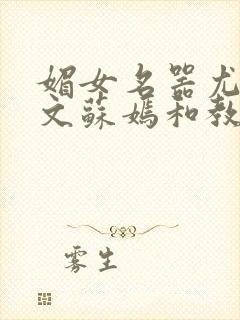 媚女名器尤
文蘇媽和教
雾生